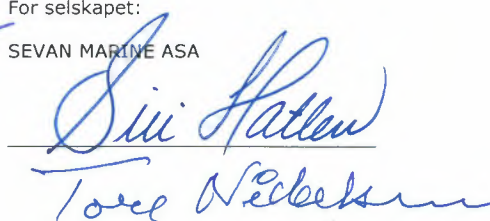 For selskapet:
SEVAN MARINE ASA
Siri Hatlen
Tore